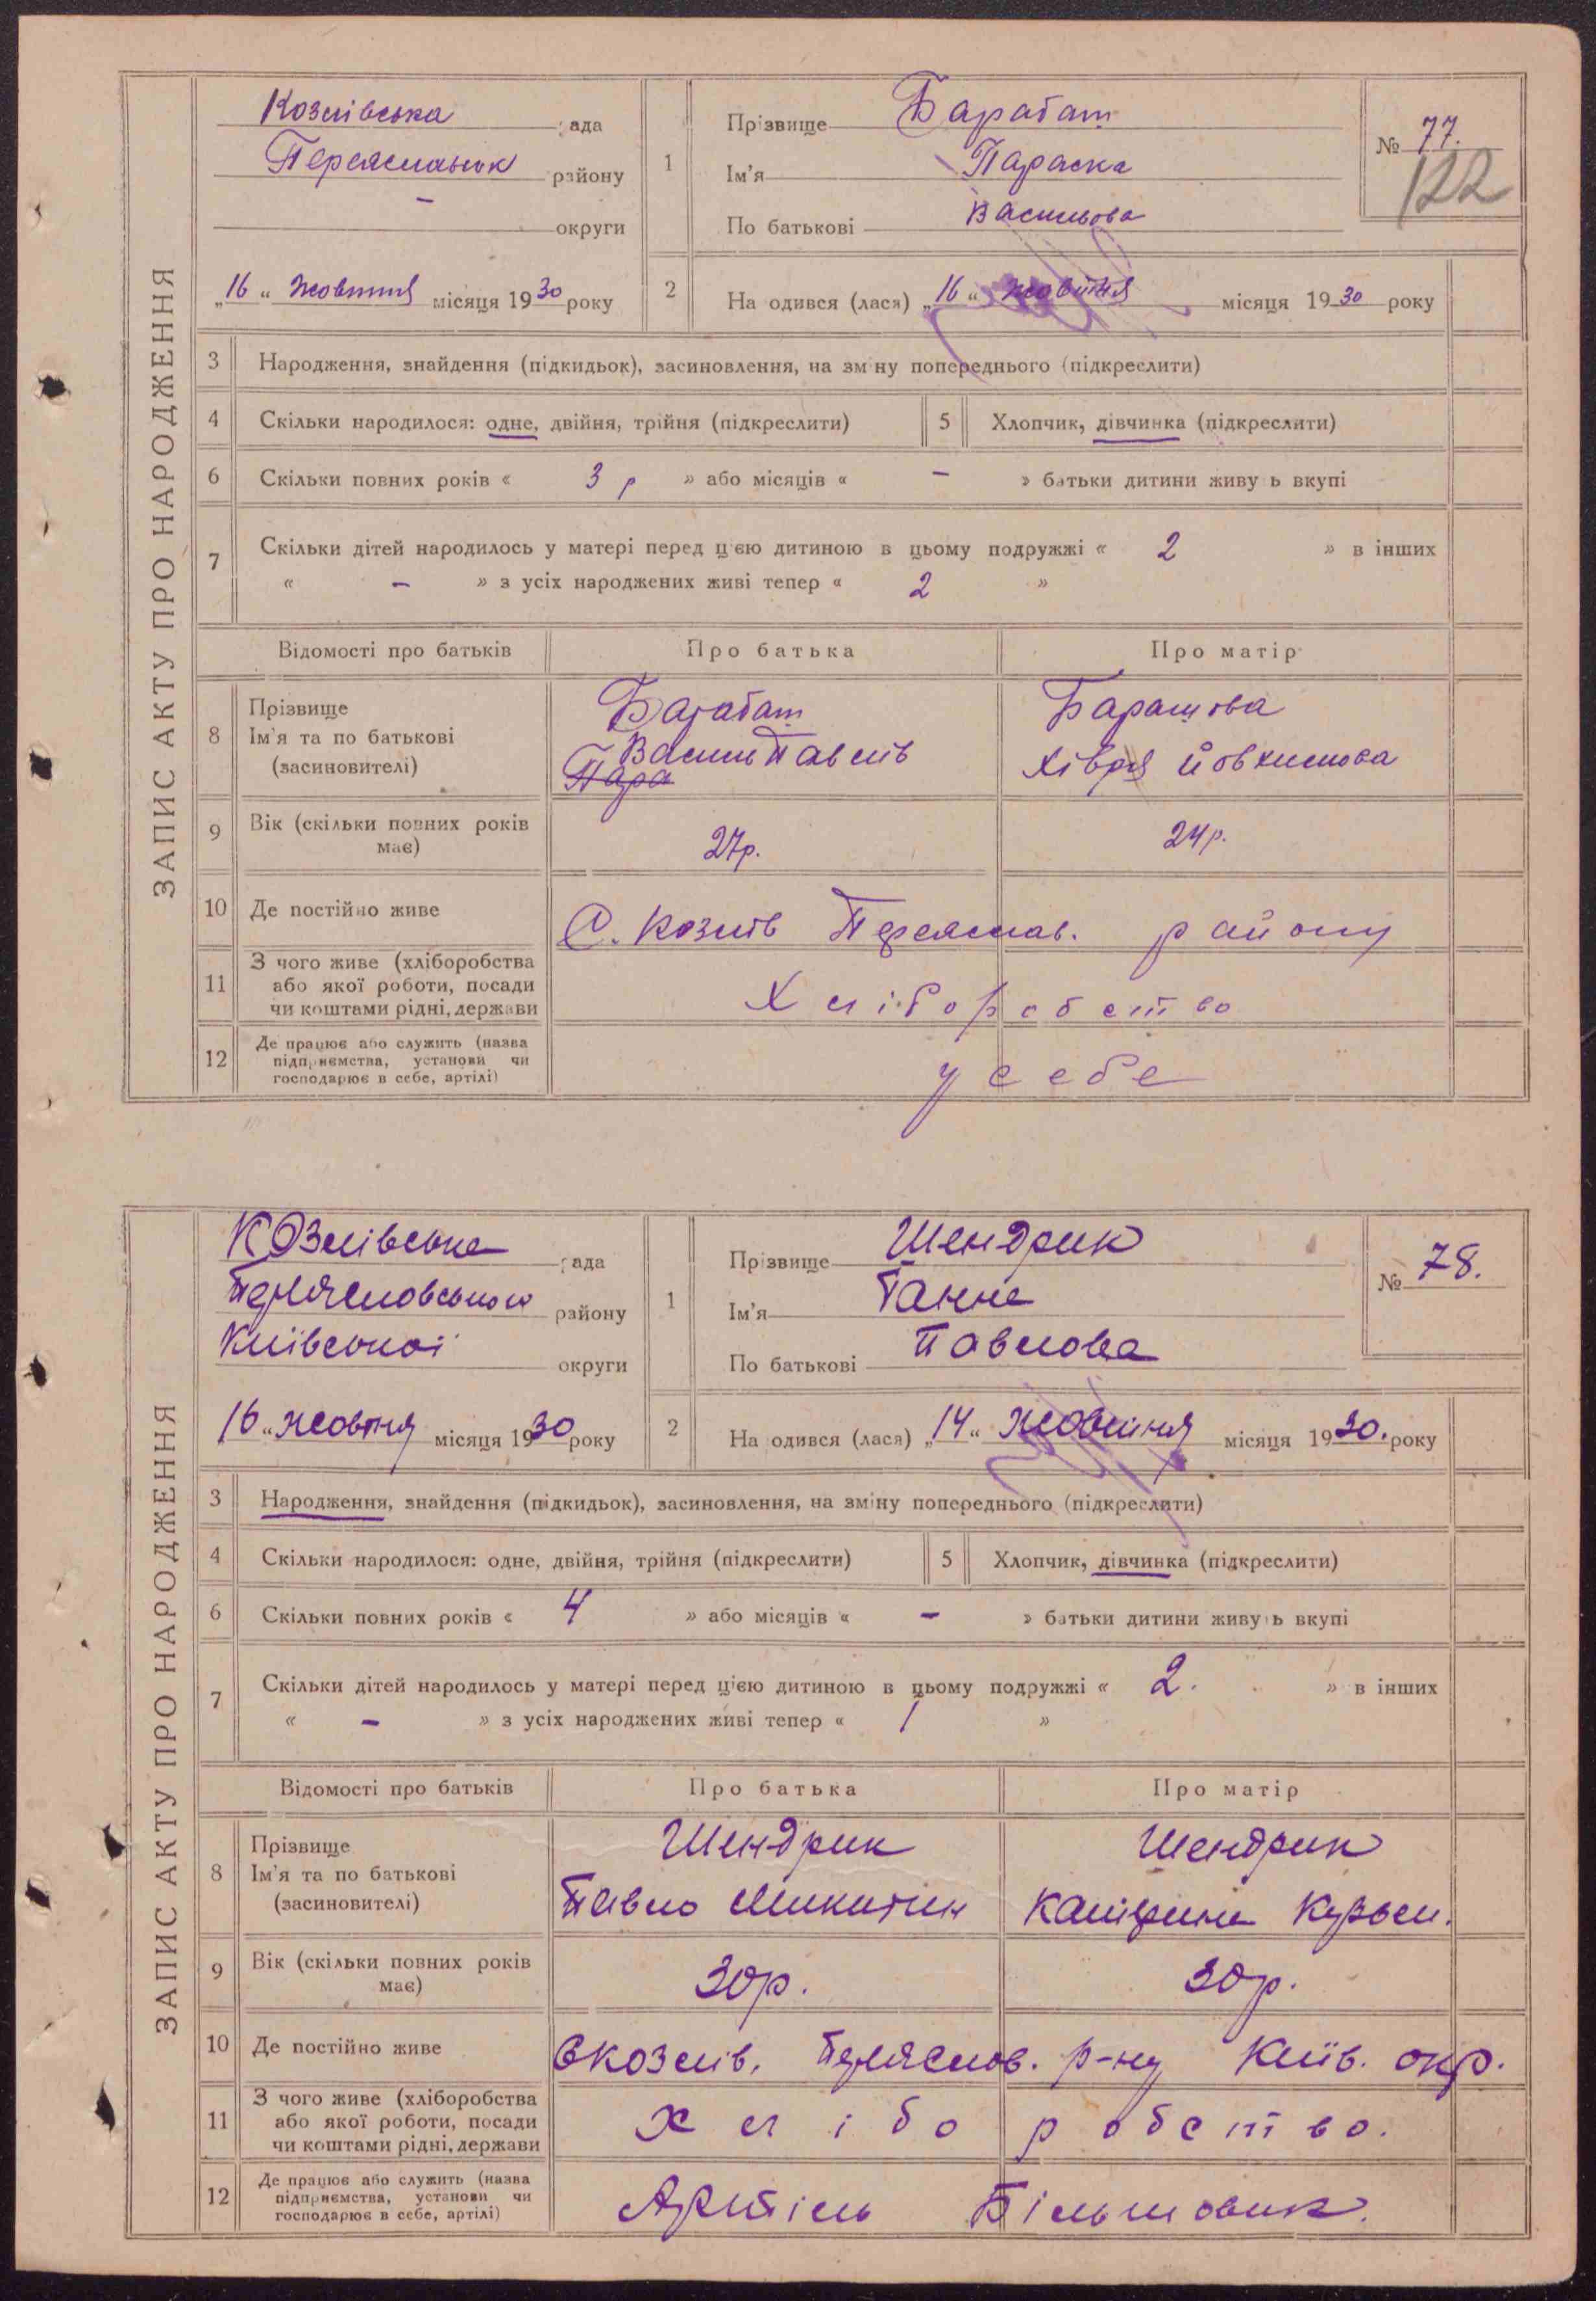 ЗАПИС АКТУ ПРО НАРОДЖЕННЯ
Козлівська рада
Переяславськ району
- округи
„16“ жовтня місяця 1930 року
1
Прізвище Барабаш
Ім'я Параска
По батькові Васильова
№ 77.
122
2
На одився (лася) „16“ жовтня місяця 1930 року
3 Народження, знайдення (підкидьок), засиновлення, на зміну попереднього (підкреслити)
4 Скільки народилося: одне, двійня, трійня (підкреслити)
5 Хлопчик, дівчинка (підкреслити)
6 Скільки повних років « 3 р » або місяців « - » батьки дитини живуть вкупі
7 Скільки дітей народилось у матері перед цією дитиною в цьому подружжі « 2 » в інших
« - » з усіх народжених живі тепер « 2 »
Відомості про батьків Про батька Про матір
8 Прізвище
Ім'я та по батькові
(засиновителі)
Барабаш
Василь Павлів
Пара
Барашова
Хівря Йовхимова
9 Вік (скільки повних років
має)
27р. 24р.
10 Де постійно живе С. Козлів Переяслав. району
11 З чого живе (хліборобства
або якої роботи, посади
чи коштами рідні, держави
Хліборобство
12 Де працює або служить (назва
підприємства, установи чи
господарює в себе, артілі)
у себе
ЗАПИС АКТУ ПРО НАРОДЖЕННЯ
Козлівська рада
Переясловського району
Київської округи
16“ жовтня місяця 1930 року
1
Прізвище Шендрик
Ім'я Ганна
По батькові Павлова
№ 78.
2
На одився (лася) „14“ жовтня місяця 1930. року
3 Народження, знайдення (підкидьок), засиновлення, на зміну попереднього (підкреслити)
4 Скільки народилося: одне, двійня, трійня (підкреслити)
5 Хлопчик, дівчинка (підкреслити)
6 Скільки повних років « 4 » або місяців « - » батьки дитини живуть вкупі
7 Скільки дітей народилось у матері перед цією дитиною в цьому подружжі « 2. » в інших
« - » з усіх народжених живі тепер « 1 »
Відомості про батьків Про батька Про матір
8 Прізвище
Ім'я та по батькові
(засиновителі)
Шендрик
Павло Микитин
Шендрик
Катерина Кузьм.
9 Вік (скільки повних років
має)
30р. 30р.
10 Де постійно живе С Козлів. Переяслов. р-ну Київ. окр.
11 З чого живе (хліборобства
або якої роботи, посади
чи коштами рідні, держави
хліборобство.
12 Де працює або служить (назва
підприємства, установи чи
господарює в себе, артілі)
Артіль Більшовик.